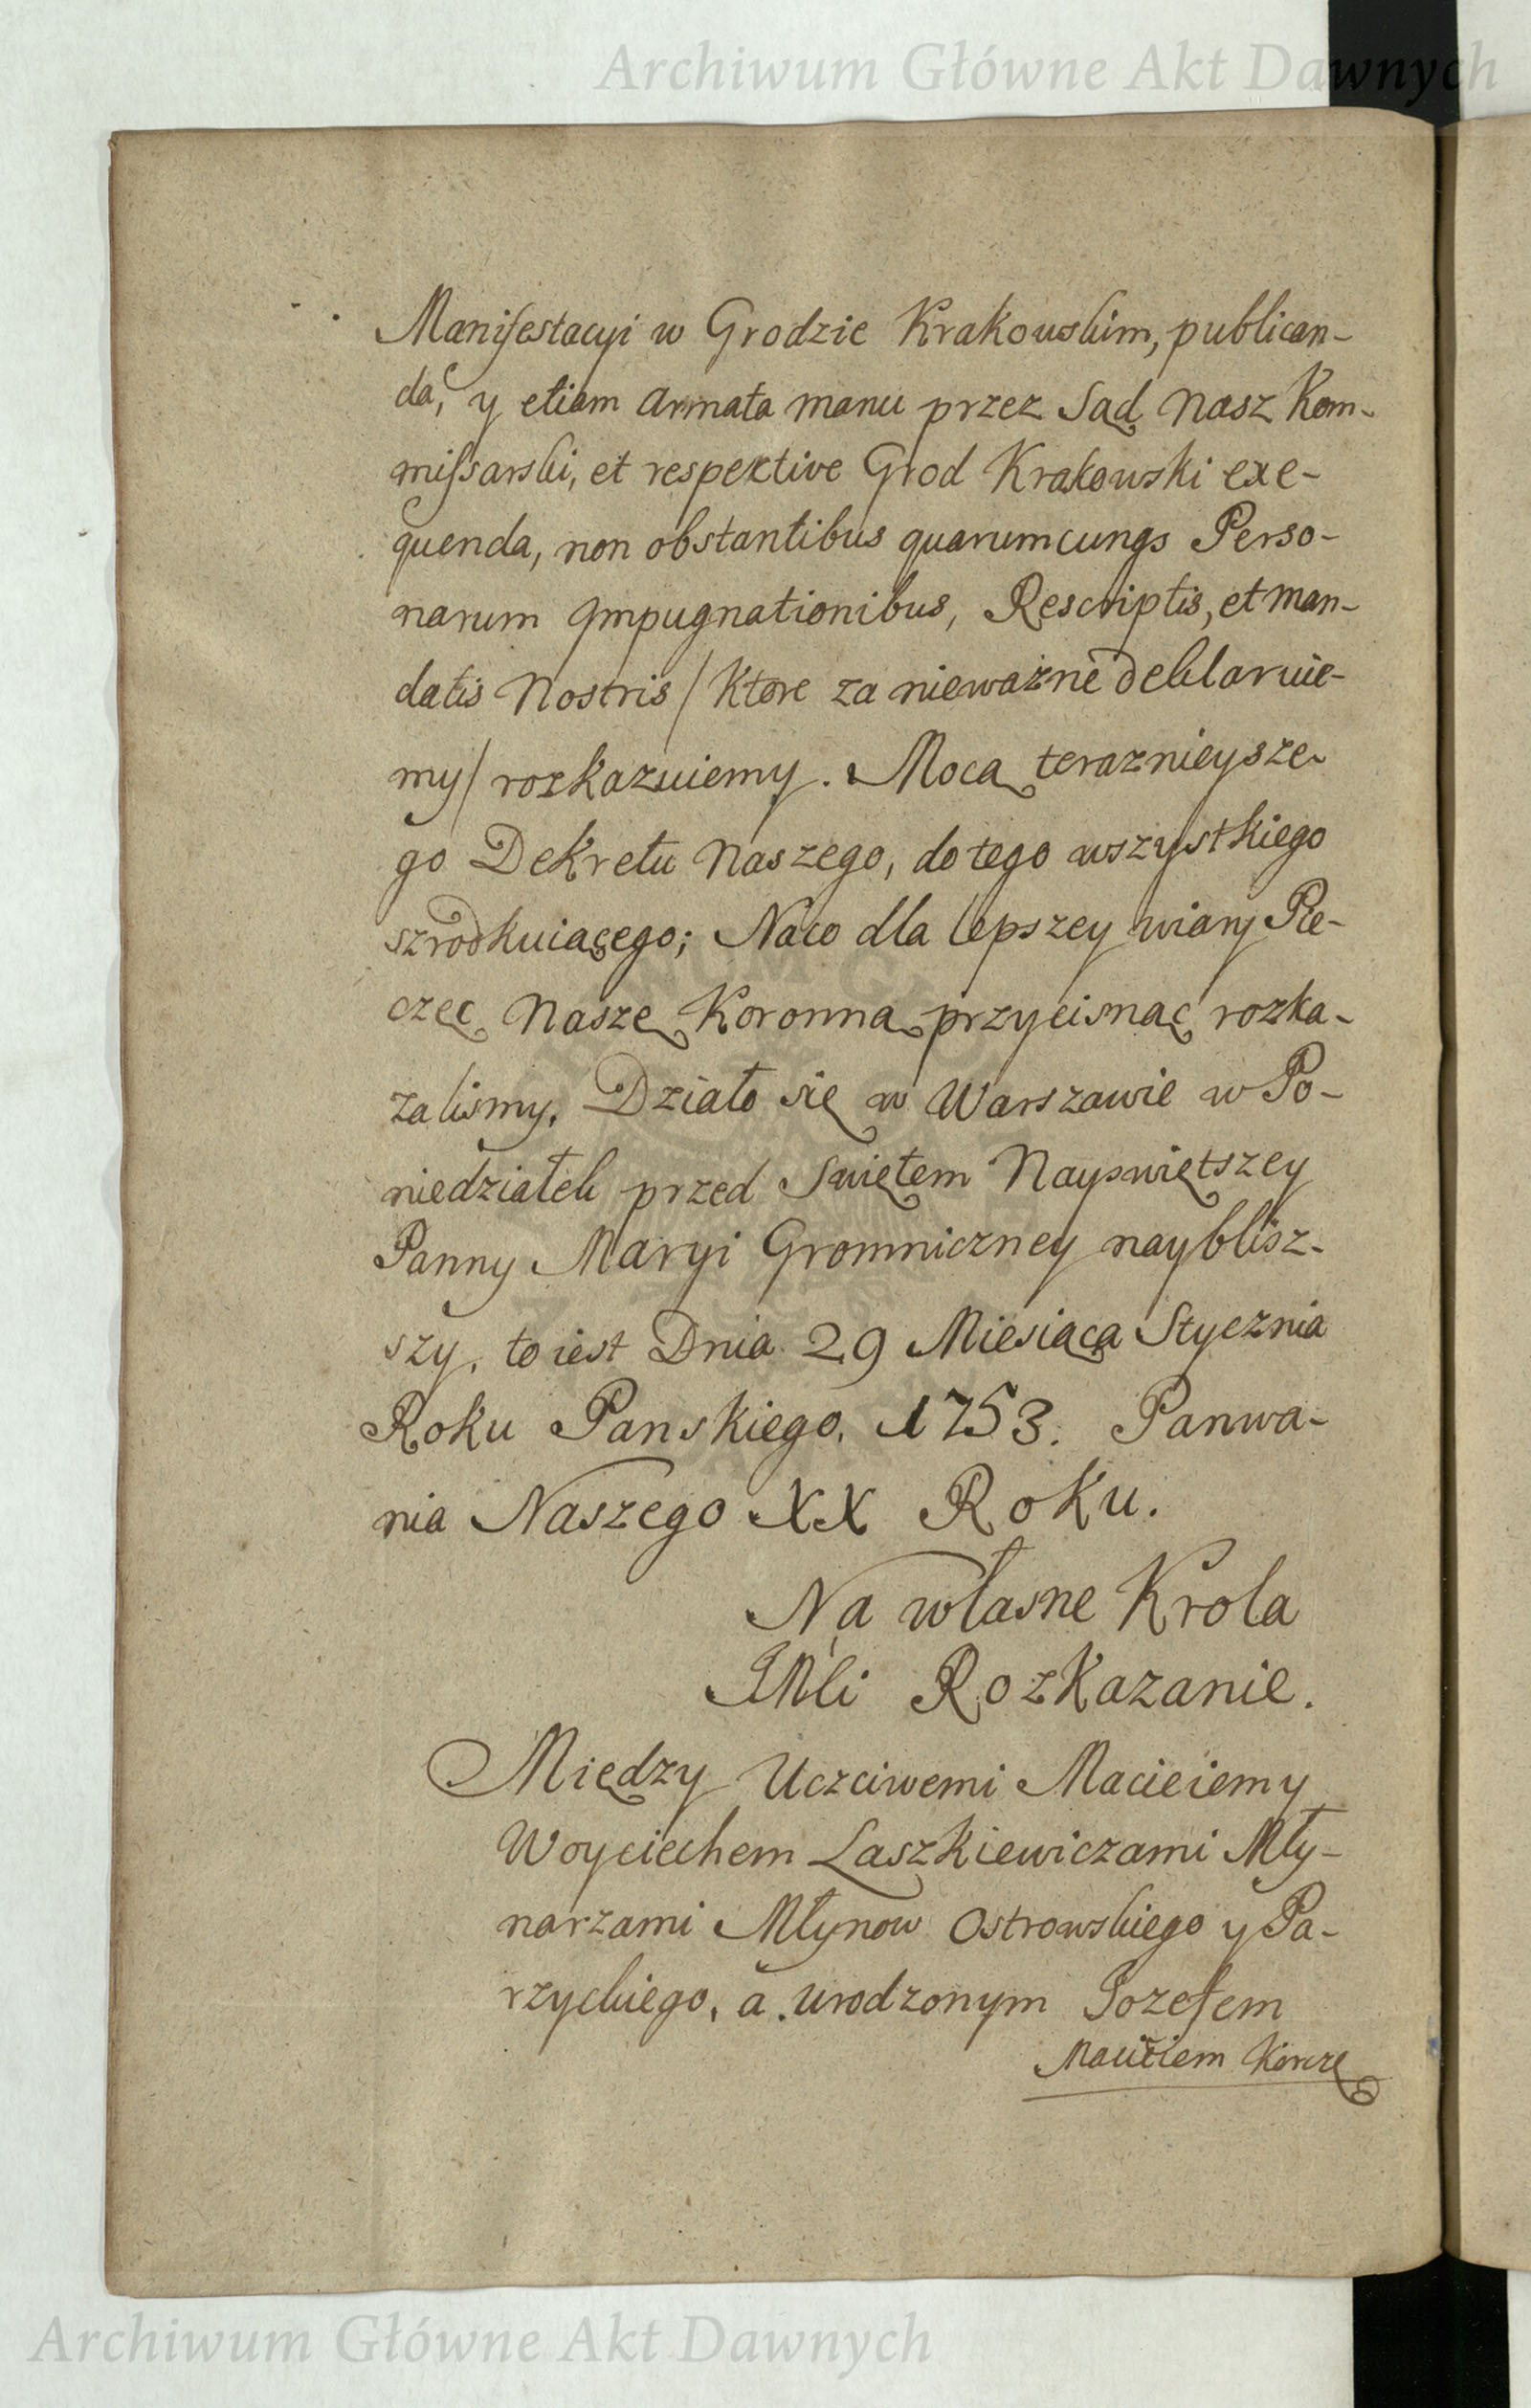 Archiwum Główne Akt Dawnych
Manifestacyi w Grodzie Krakowskim, publican-
da, y etiam armata manu przez Sąd Nasz Kom-
missarski, et respective Grod Krakowski exe-
quenda, non obstantibus quarumcunqs Perso-
narum Impugnationibus, Rescriptis, et Man-
datis Nostris / Ktore za nieważne deklaruie-
my / rozkazuiemy. Mocą teraznieysze-
go Dekretu Naszego, do tego wszystkiego
szrodkuiącego; Naco dla lepszey wiary Pie-
częc Naszę Koronną przycisnąc rozka-
zalismy. Działo się w Warszawie w Po-
niedziałek przed Swiętem Nayswiętszey
Panny Maryi Gromniczney naybliz-
szy, to iest Dnia 29 Miesiąca Stycznia
Roku Panskiego. 1753. Panwa-
nia Naszego XX Roku.
Na własne Krola
JMci Rozkazanie.
Między Uczciwemi Macieiem y
Woyciechem Laszkiewiczami Mły-
narzami Młynow Ostrowskiego y Pa-
rzyckiego, a Urodzonym Jozefem
Macieiem
Archiwum Główne Akt Dawnych